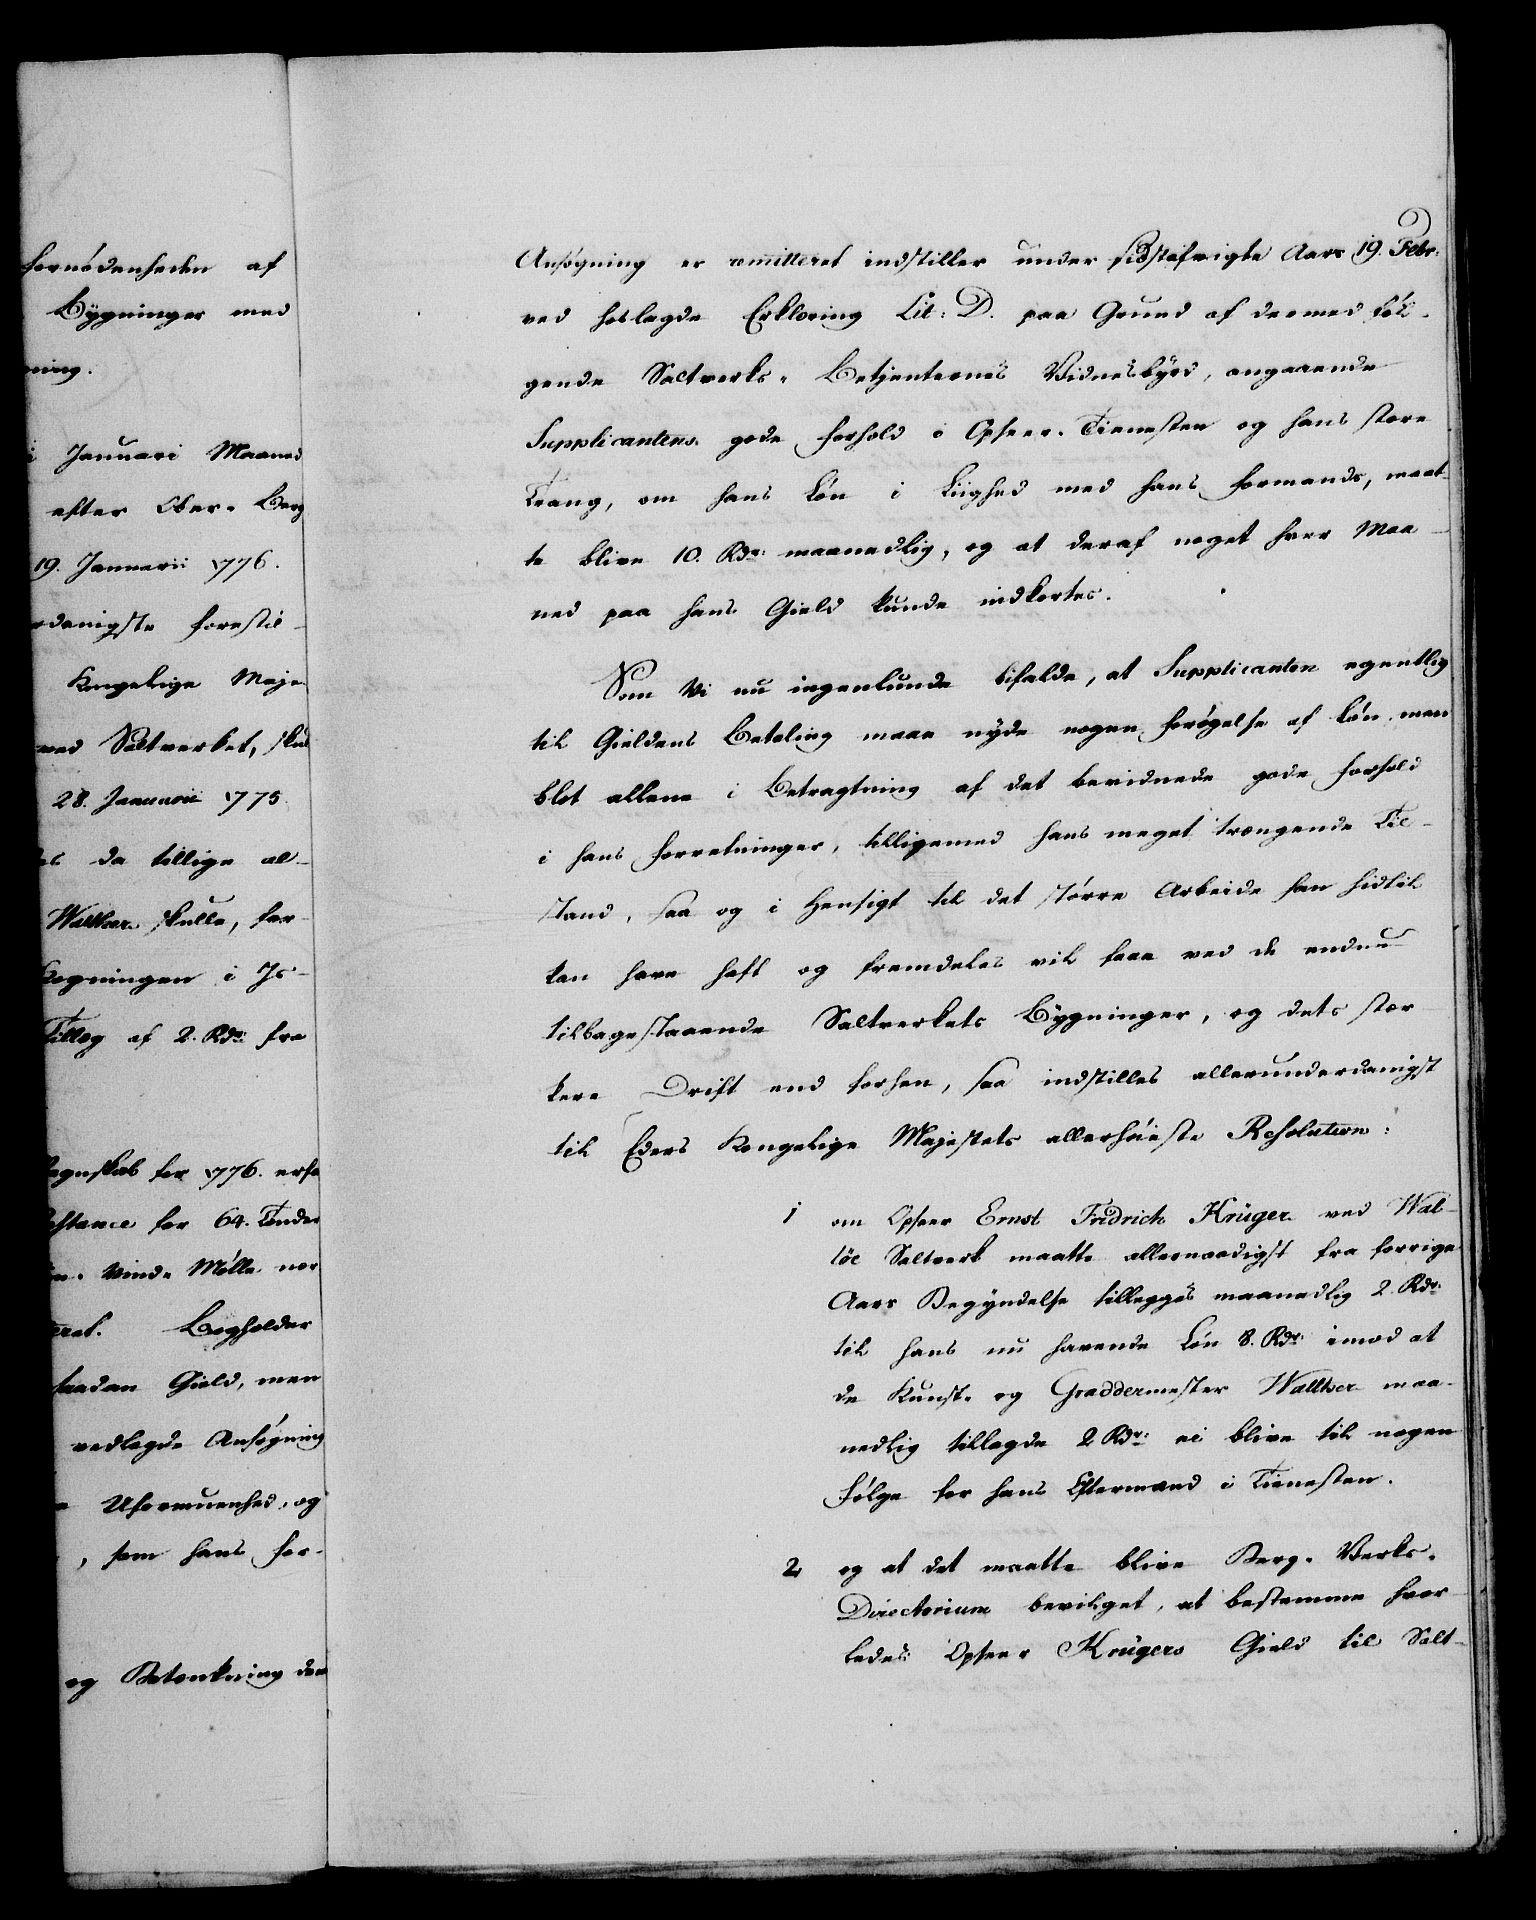 fornødenheden af
Bygninger med
ning.
i Januari Maaned
efter Ober-Berg
19. Januarii 1776.
rdanigste forestil-
Kongelige Maje-
ved Saltverket, skul
28. Januarii 1775.
es da tillige al-
Walther skulle, for
Kogningen i Is-
Tillæg af 2. Rdr: fra
egnskab for 1776. erfa
stance for 64. Tønder
Vind-Mølle nor
eret. Bogholder
saadan Gield, men
vedlagde Ansøgning
Uformuenhed, og
, som hans for-
og Betænkning den
Ansøgning er remitteret indstiller under sidstafvigte Aars 19. Febr:
ved hoslagde Erklæring Lit: D. paa Grund af dermed føl-
gende Saltverks-Betjenternes Vidnesbyrd, angaaende
Supplicantens gode forhold i Opseer-Tienesten og hans store
Trang, om hans Løn i Liighed med hans formands, maat-
te blive 10. Rdr: maanedlig, og at deraf noget hver Maa-
ned paa hans Gield kunde indkortes.
Som Vi nu ingenlunde bifalde, at Supplicanten egentlig
til Gieldens Betaling maae nyde nogen forøgelse af Løn, men
blot allene i Betragtning af det bevidnede gode forhold
i hans forretninger, tilligemed hans meget trængende Til-
stand, saa og i Hensigt til det større Arbeide han hidtil
kan have haft og fremdeles vil faae ved de endnu
tilbagestaaende Saltverkets Bygninger, og dets stær-
kere Drift end forhen, saa indstilles allerunderdanigst
til Eders Kongelige Majestets allerhøieste Resolution:
1 om Opseer Ernst Fridrich Krüger ved Wal-
løe Saltverk maatte allernaadigst fra forrige
Aars Begyndelse tillegges maanedlig 2 Rdr:
til hans nu havende Løn 8. Rdr: imod at
de Kunst- og Graddermester Walther maa-
nedlig tillagde 2 Rdr: ei blive til nogen
følge for hans Eftermand i Tienesten.
2 og at det maatte blive Berg-Verks-
Directorium bevilget, at bestemme hvor-
ledes Opseer Krügers Gield til Salt-